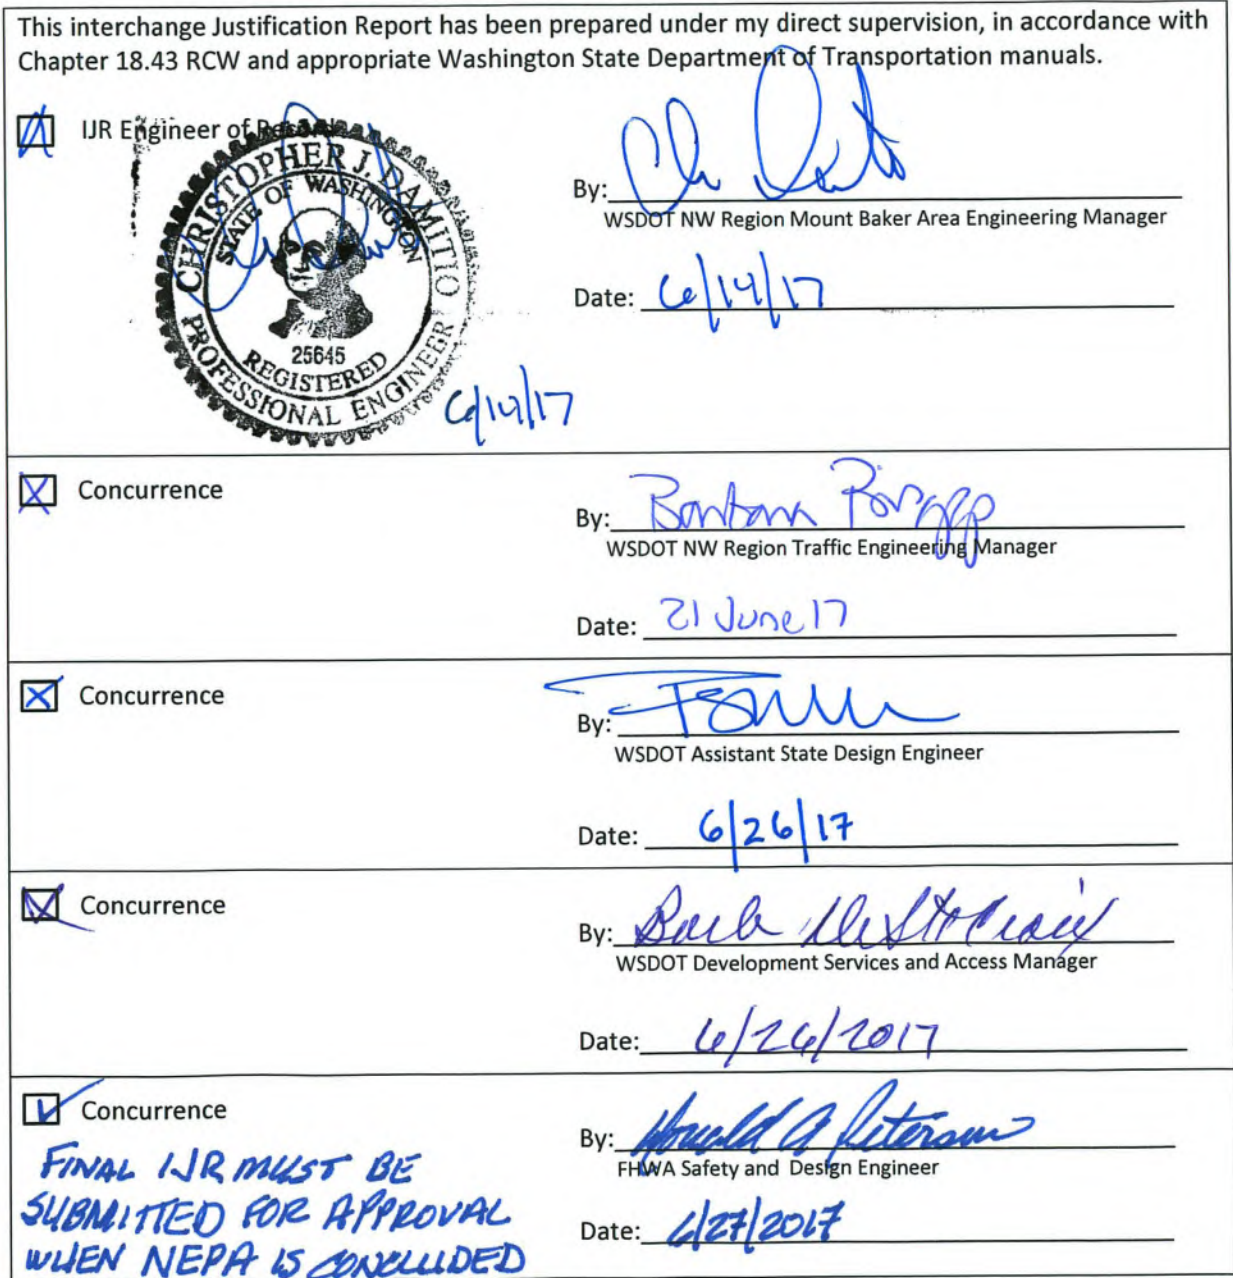 This interchange Justification Report has been prepared under my direct supervision, in accordance with
Chapter 18.43 RCW and appropriate Washington State Department of Transportation manuals.
IJR Engineer of Record
CHRISTOPHER J. DAMITIO
STATE OF WASHINGTON
25645
REGISTERED
PROFESSIONAL ENGINEER
6/14/17
By:
WSDOT NW Region Mount Baker Area Engineering Manager
Date: 6/14/17
Concurrence
By:
WSDOT NW Region Traffic Engineering Manager
Date: 21 June 17
Concurrence
By:
WSDOT Assistant State Design Engineer
Date: 6/26/17
Concurrence
By: Barb De Ste Croix
WSDOT Development Services and Access Manager
Date: 6/26/2017
Concurrence
FINAL IJR MUST BE
SUBMITTED FOR APPROVAL
WHEN NEPA IS CONCLUDED
By: Donald A Petersen
FHWA Safety and Design Engineer
Date: 6/27/2017